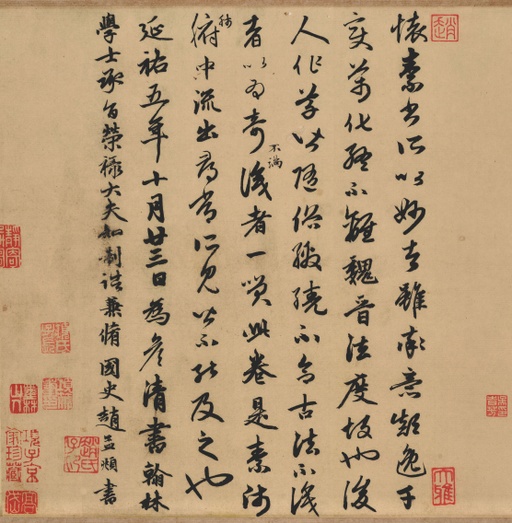 趙
懷素書所以妙者雖率意顛逸千
變萬化終不離魏晉法度故也後
人作草皆隨俗繳繞不合古法不識
者以為奇不滿識者一笑此卷是素師
肺腑中流出尋常所見皆不能及之也
延祐五年十月廿三日為彥清書翰林
學士承旨榮祿大夫知制誥兼脩國史趙孟頫書
大雅
趙氏子昂
項子京家珍藏